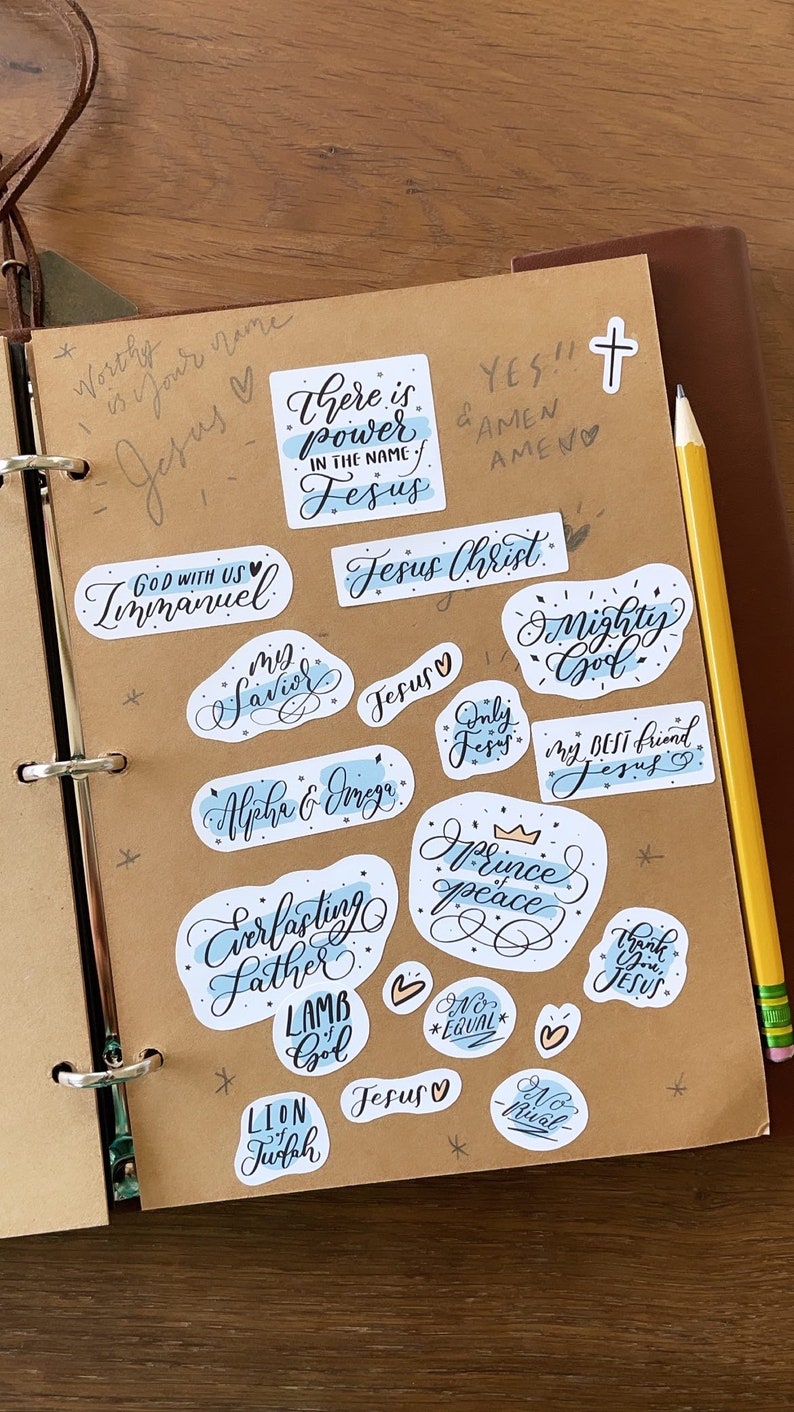 Worthy
is your name
Jesus
There is
power
IN THE NAME of
Jesus
YES!!
& AMEN
AMEN
GOD WITH US
Immanuel
Jesus Christ
Mighty
God
My
Savior
Jesus
Only
Jesus
My BEST friend
Jesus
Alpha & Omega
Prince
of
peace
Everlasting
Father
Thank
You,
JESUS
LAMB
of
God
No
EQUAL
Jesus
LION
of
Judah
No
Rival